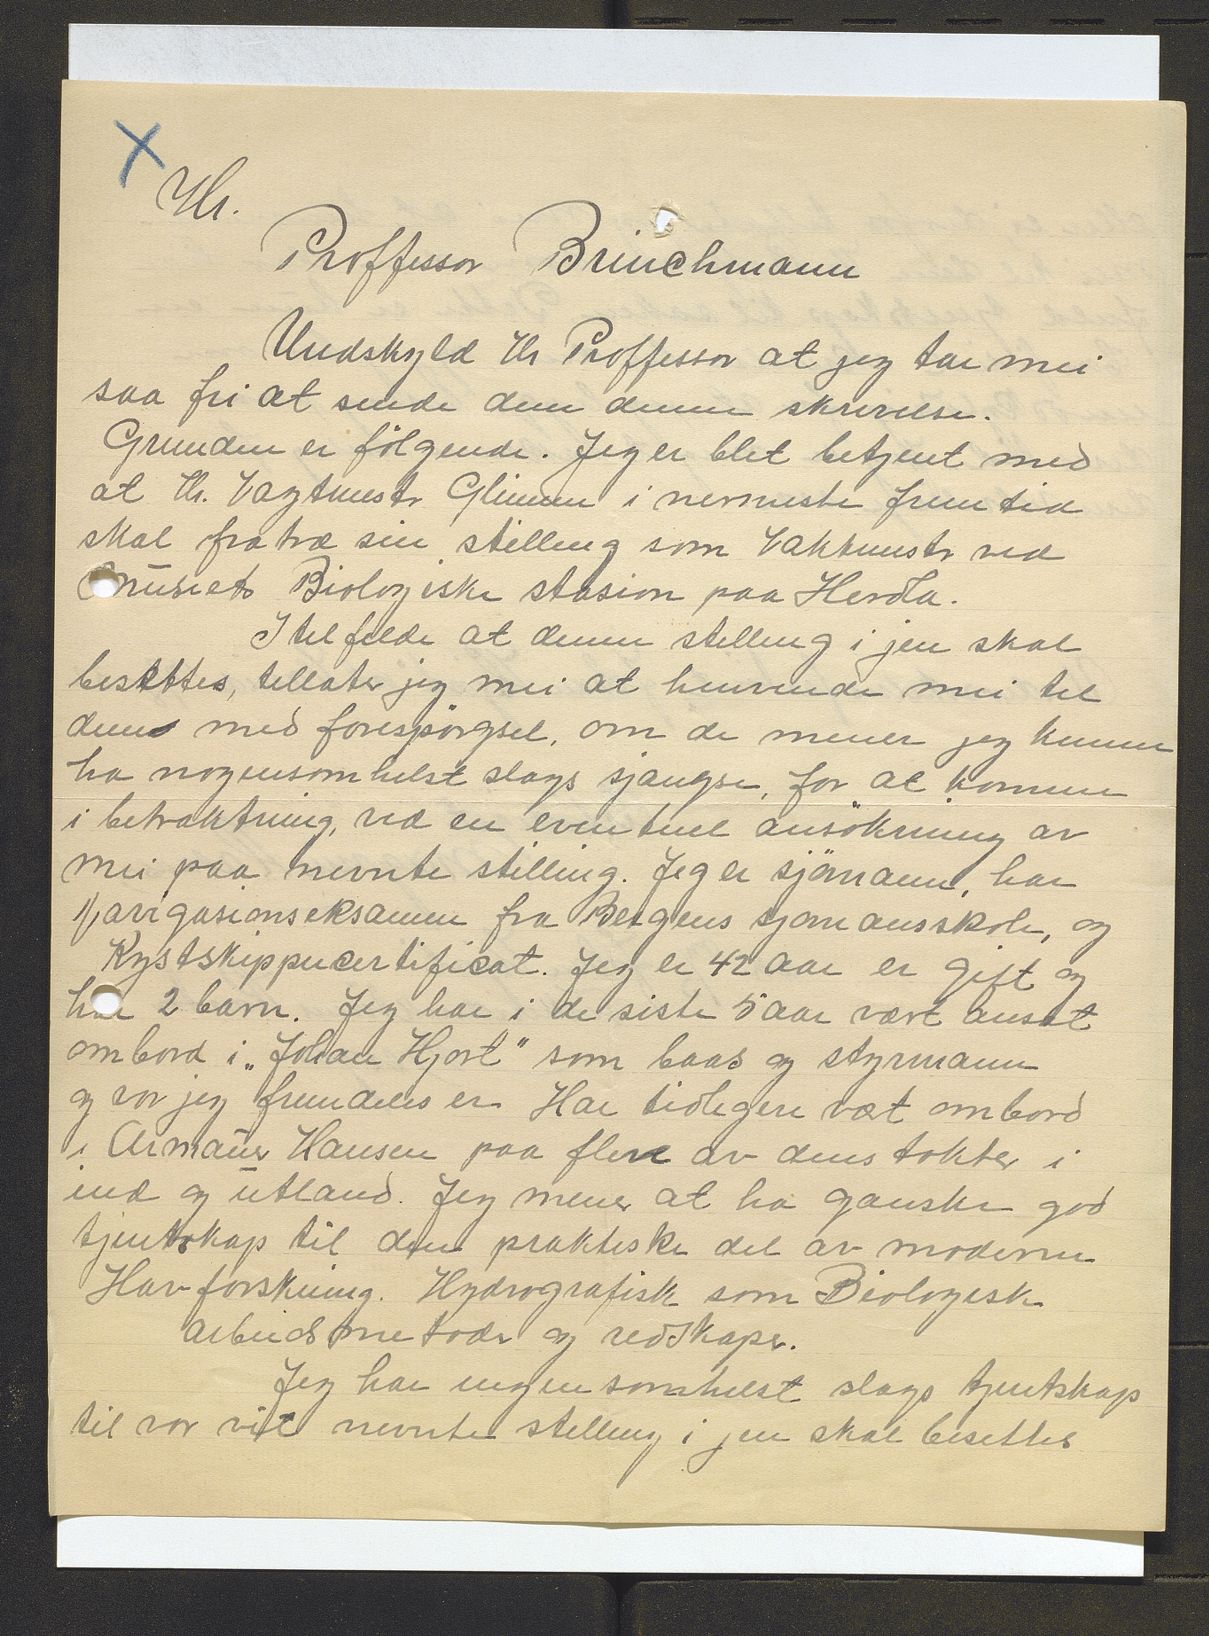 Hr.
Proffessor Brinchmann
Undskyld Hr Proffessor at jeg tar mei
saa fri at sende dem denne skrivelse.
Grunden er følgende. Jeg er blet betjent med
at Hr. Vagtmestr Glimme i nermeste fremtid
skal fratræ sin stilling som Vaktmestr ved
Museets Biologiske stasion paa Herdla.
I tilfelde at denne stilling i jen skal
besettes, tillater jeg mei at henvende mei til
dem med forespørgsel, om de mener jeg kunne
ha nogensomhelst slags sjangse, for at komme
i betraktning, ved en eventuel ansøkning av
mei paa nevnte stilling. Jeg er sjømann, har
Navigasionseksamen fra Bergens sjømansskole, og
Kystskippercertificat. Jeg er 42 aar er gift og
har 2 barn. Jeg har i de siste 5 aar vært ansat
ombord i „Johan Hjort" som baas og styrmann
og vor jeg fremdeles er Har tidligere vært ombord
i Armauer Hansen paa flere av dens tokter i
ind og utland. Jeg mener at ha ganske god
tjentskap til den praktiske del av moderne
Havforskning. Hydrografisk som Biologisk
arbeidsmetoder og redskaper.
Jeg har ingen somhelst slags tjentskap
til vor vit nevnte stilling i jen skal besettes